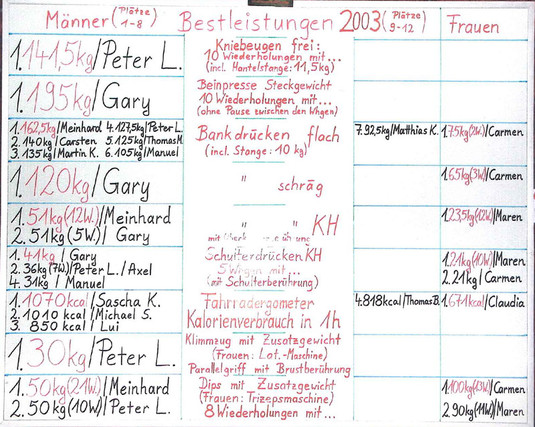 Männer (Plätze 1-8) Bestleistungen 2003 (Plätze 9-12) Frauen
1. 141,5kg/Peter L.
Kniebeugen frei:
10 Wiederholungen mit...
(incl. Hantelstange: 11,5kg)
1. 195kg/Gary
Beinpresse Steckgewicht
10 Wiederholungen mit...
(ohne Pause zwischen den Whgen)
1. 162,5kg/Meinhard 4. 127,5kg/Peter L.
2. 140kg/Carsten 5. 125kg/Thomas M.
3. 135kg/Martin K. 6. 105kg/Manuel
Bankdrücken flach
(incl. Stange: 10 kg)
7. 92,5kg/Matthias K.
1. 75kg(2W.)/Carmen
1. 120kg/Gary
" schräg
1. 65kg(3W.)/Carmen
1. 51kg(12W.)/Meinhard
2. 51kg(5W.)/Gary
" " KH
mit
1. 23,5kg(12W.)/Maren
1. 41kg/Gary
2. 36kg(7W.)/Peter L./Axel
4. 31kg/Manuel
Schulterdrücken KH
5 Whgen mit...
(mit Schulterberührung)
1. 21kg(10W.)/Maren
2. 21kg/Carmen
1. 1070kcal/Sascha K.
2. 1010 kcal/Michael S.
3. 850 kcal/Lui
Fahrradergometer
Kalorienverbrauch in 1h
4. 818kcal/Thomas B.
1. 671kcal/Claudia
1. 30kg/Peter L.
Klimmzug mit Zusatzgewicht
(Frauen: Lat.-Maschine)
Parallelgriff mit Brustberührung
1. 50kg(21W.)/Meinhard
2. 50kg(10W)/Peter L.
Dips mit Zusatzgewicht
(Frauen: Trizepsmaschine)
8 Wiederholungen mit...
1. 100kg(13W.)/Carmen
2. 90kg(11W.)/Maren